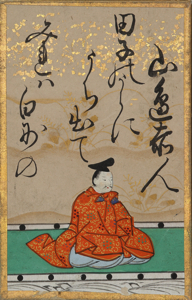 山邊赤人
田子のうらに
うち出て
みれハ
白妙の